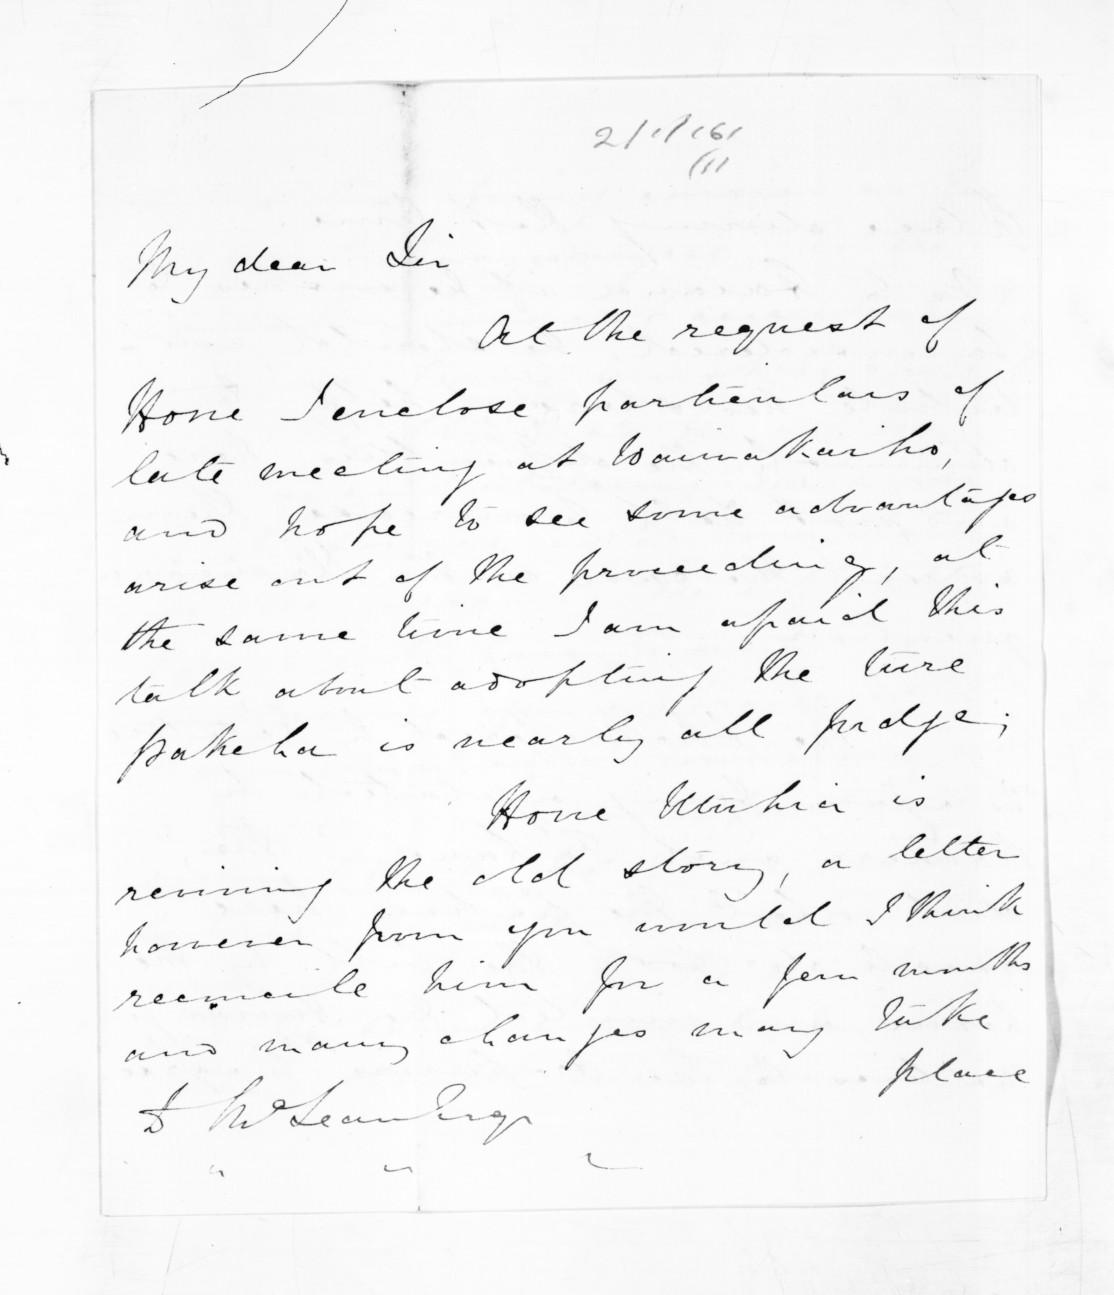 2/1/161
My dear Sir
At the request of
Hone I enclose particulars of
late meeting at Waiwakaiho,
and hope to see some advantages
arise out of the proceeding, at
the same time I am afraid this
talk about adopting the ture
pakeha is nearly all fudge;
Hone is
reviving the old story, a letter
however from you would I think
reconcile him for a few months
and many changes may take
place
D McLean Esqr
" " "